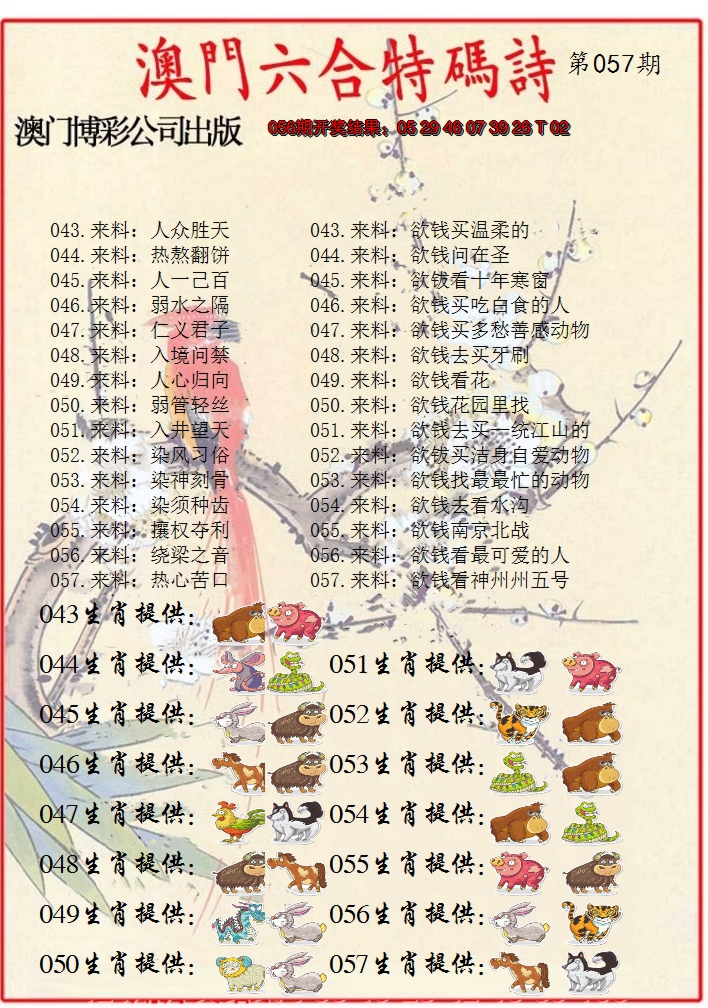 澳門六合特碼詩 第057期
澳门博彩公司出版 056期开奖结果：05 29 46 07 39 26 T 02
043.来料：人众胜天 043.来料：欲钱买温柔的
044.来料：热熬翻饼 044.来料：欲钱问在圣
045.来料：人一己百 045.来料：欲钱看十年寒窗
046.来料：弱水之隔 046.来料：欲钱买吃白食的人
047.来料：仁义君子 047.来料：欲钱买多愁善感动物
048.来料：入境问禁 048.来料：欲钱去买牙刷
049.来料：人心归向 049.来料：欲钱看花
050.来料：弱管轻丝 050.来料：欲钱花园里找
051.来料：入井望天 051.来料：欲钱去买一统江山的
052.来料：染风习俗 052.来料：欲钱买洁身自爱动物
053.来料：染神刻骨 053.来料：欲钱找最最忙的动物
054.来料：染须种齿 054.来料：欲钱去看水沟
055.来料：攘权夺利 055.来料：欲钱南京北战
056.来料：绕梁之音 056.来料：欲钱看最可爱的人
057.来料：热心苦口 057.来料：欲钱看神州州五号
043生肖提供：
044生肖提供： 051生肖提供：
045生肖提供： 052生肖提供：
046生肖提供： 053生肖提供：
047生肖提供： 054生肖提供：
048生肖提供： 055生肖提供：
049生肖提供： 056生肖提供：
050生肖提供： 057生肖提供：